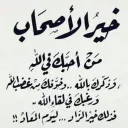 خيرُ الأصحاب
مَن أحبّكَ في الله
وذكّركَ بالله .. وخوّفكَ من غضب الله
ورغّبكَ في لقاء الله
فذلك خيرُ الزاد ... ليوم المعاد !!